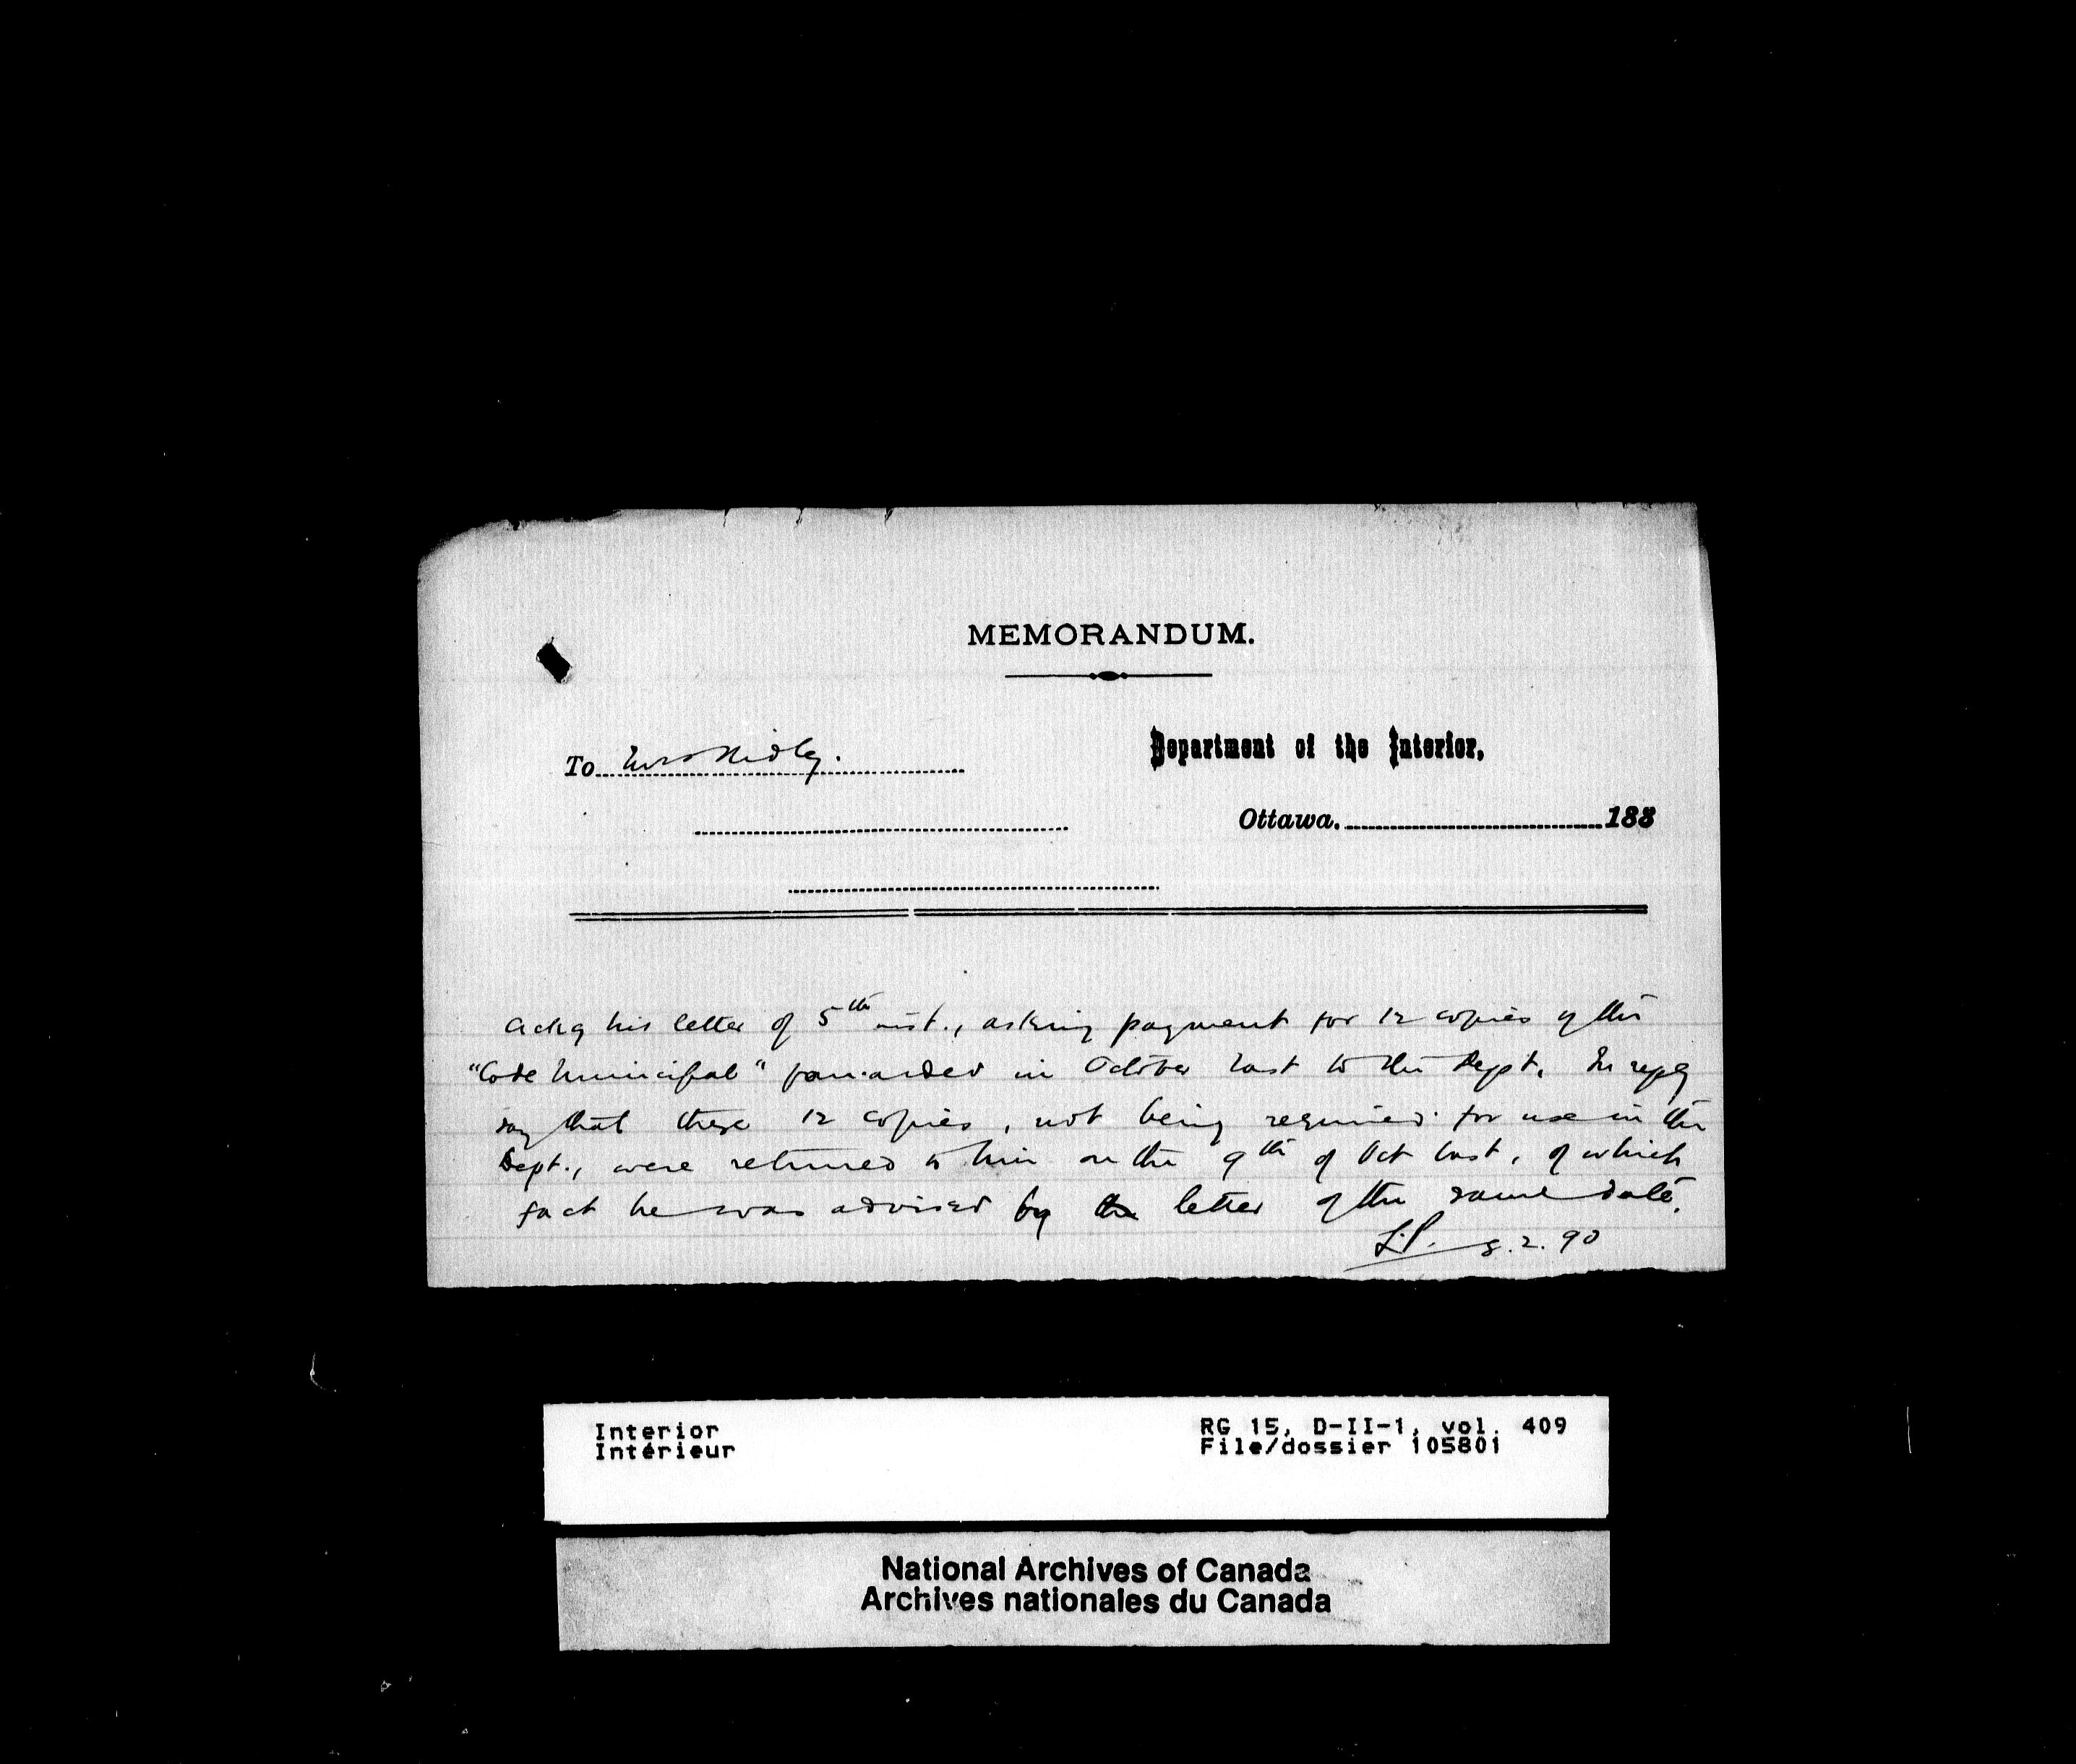 MEMORANDUM.
To Mrs Ridley.
Department of the Interior,
Ottawa, 188
Ackg his letter of 5th inst., asking payment for 12 copies of the
"Code Municipal" forwarded in October last to the Dept. In reply
say that these 12 copies, not being required for use in the
Dept., were returned to him on the 9th of Oct last, of which
fact he was advised by letter of the same date.
L.P. 8.2.90
Interior
Intérieur
RG 15, D-II-1, vol. 409
File/dossier 105801
National Archives of Canada
Archives nationales du Canada